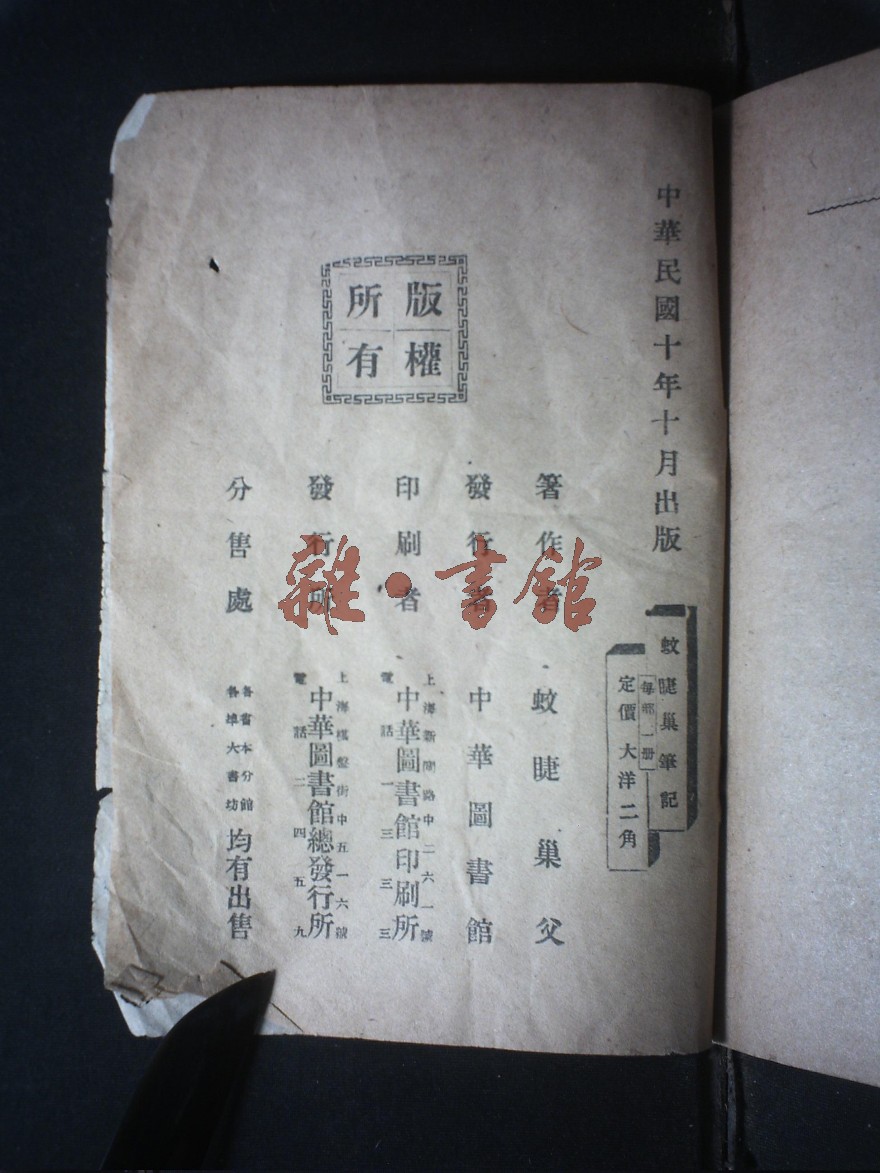 中華民國十年十月出版
蚊睫巢筆記
每部一册
定價大洋二角
版權所有
著作者 蚊睫巢父
發行者 中華圖書館
印刷者 上海新閘路中二六一號
中華圖書館印刷所
電話一三三三
發行所 上海棋盤街中五一六號
中華圖書館總發行所
電話二四五九
分售處 各省本分館
各埠大書坊
均有出售
雜·書館